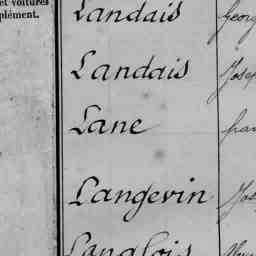 et voitures
plément.
Landais Georg
Landais Josep
Lane fran
Langevin Jos
Langlois